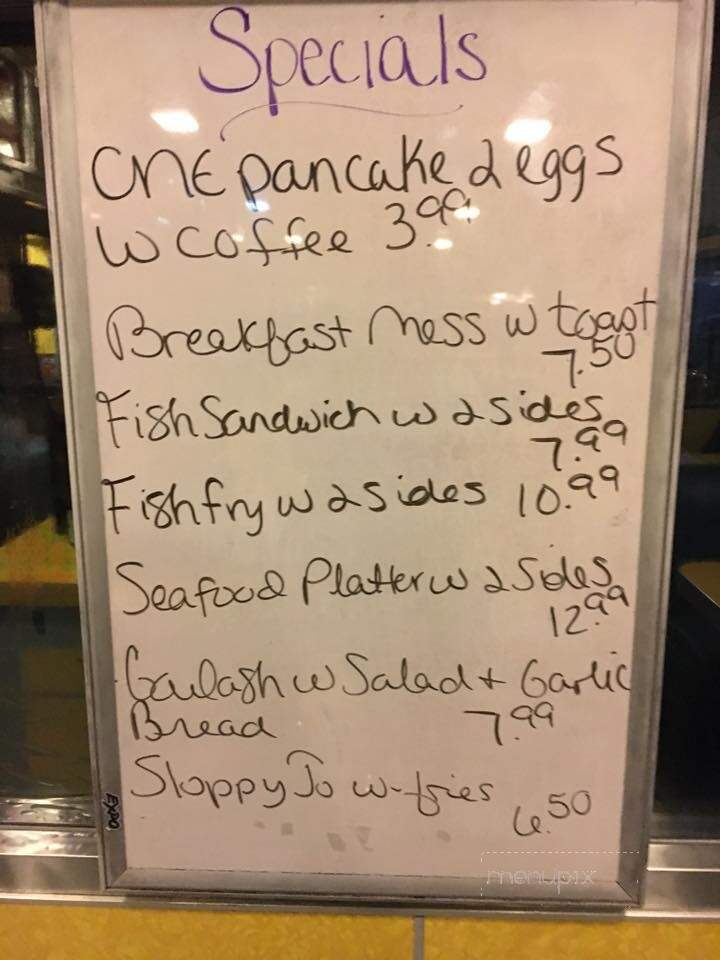 Specials
ONE pancake 2 eggs
w coffee 3.99
Breakfast Mess w toast
7.50
Fish Sandwich w 2 sides
7.99
Fish fry w 2 sides 10.99
Seafood Platter w 2 Sides
12.99
Goulash w Salad + Garlic
Bread 7.99
Sloppy Jo w-fries
6.50
EXPO
menupix